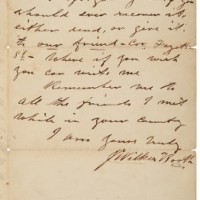 should ever receive it,
either send, or give it
to our friend
88 - Where if you wish
you can write me
Remember me to
all the friends I met
while in your country
I am Yours truly
J. Wilkes Booth.